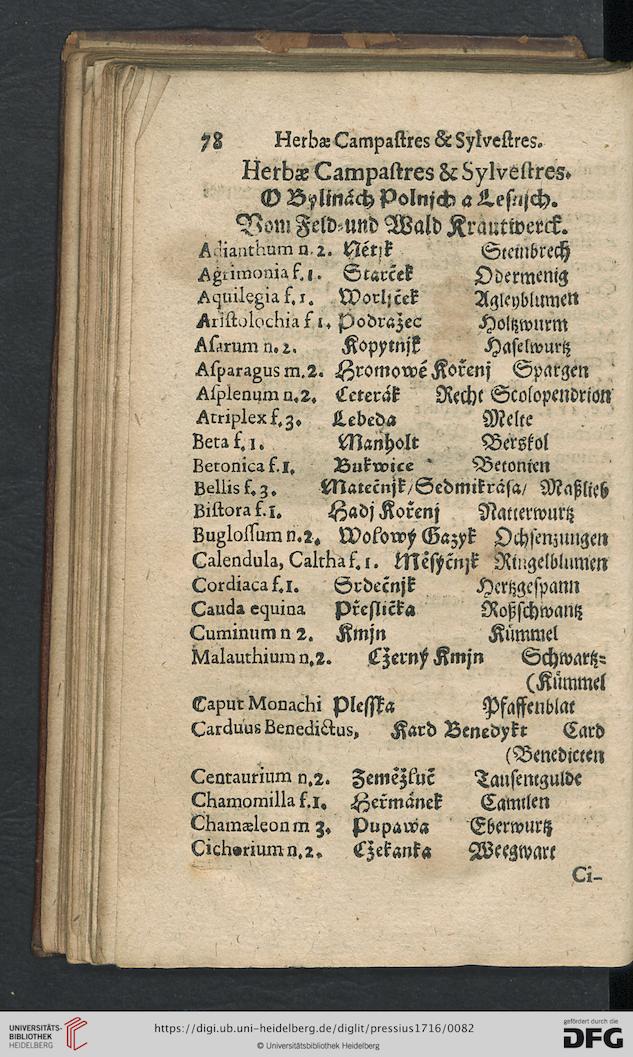 78 Herbæ Campaſtres & Sylveſtres.
Herbæ Campaſtres & Sylveſtres.
O Bylinách Polnjch a Leſnjch.
Vom Feld-und Wald Krautwerck.
Adianthum n. 2. Nétjk Steinbrech
Agrimonia f. 1. Starček Odermenig
Aquilegia f, 1. Worljček Agleyblumen
Ariſtolochia f 1, Podražec Holtzwurm
Aſarum n. 2. Kopytnjk Haſelwurtz
Aſparagus m. 2. Hromowé Kořenj Spargen
Aſplenum n. 2, Ceterák Recht Scolopendrion
Atriplex f, 3. Lebeda Melte
Beta f, 1. Manholt Berskol
Betonica f. 1, Bukwice Betonien
Bellis f, 3. Matečnjk/Sedmikráſa/ Maßlieb
Biſtora f. 1. Hadj Kořenj Natterwurtz
Bugloſſum n. 2. Wolowý Gazyk Ochſenzungen
Calendula, Caltha f, 1. Měſýčnjk Ringelblumen
Cordiaca f, 1. Srdečnjk Hertzgeſpann
Cauda equina Přeſlička Roßſchwantz
Cuminum n 2. Kmjn Kümmel
Malauthium n, 2. Cžerný Kmjn Schwartz=
(Kümmel
Caput Monachi Pleſſka Pfaffenblat
Carduus Benedictus, Kard Benedykt Card
(Benedicten
Centaurium n, 2. Zeměžluč Tauſentgulde
Chamomilla f, 1. Heřmánek Camilen
Chamæleon m 3. Pupawa Eberwurtz
Cichorium n, 2. Cžekanka Weegwart
Ci-
UNIVERSITÄTS-
BIBLIOTHEK
HEIDELBERG
https://digi.ub.uni-heidelberg.de/diglit/pressius1716/0082
© Universitätsbibliothek Heidelberg
gefördert durch die
DFG